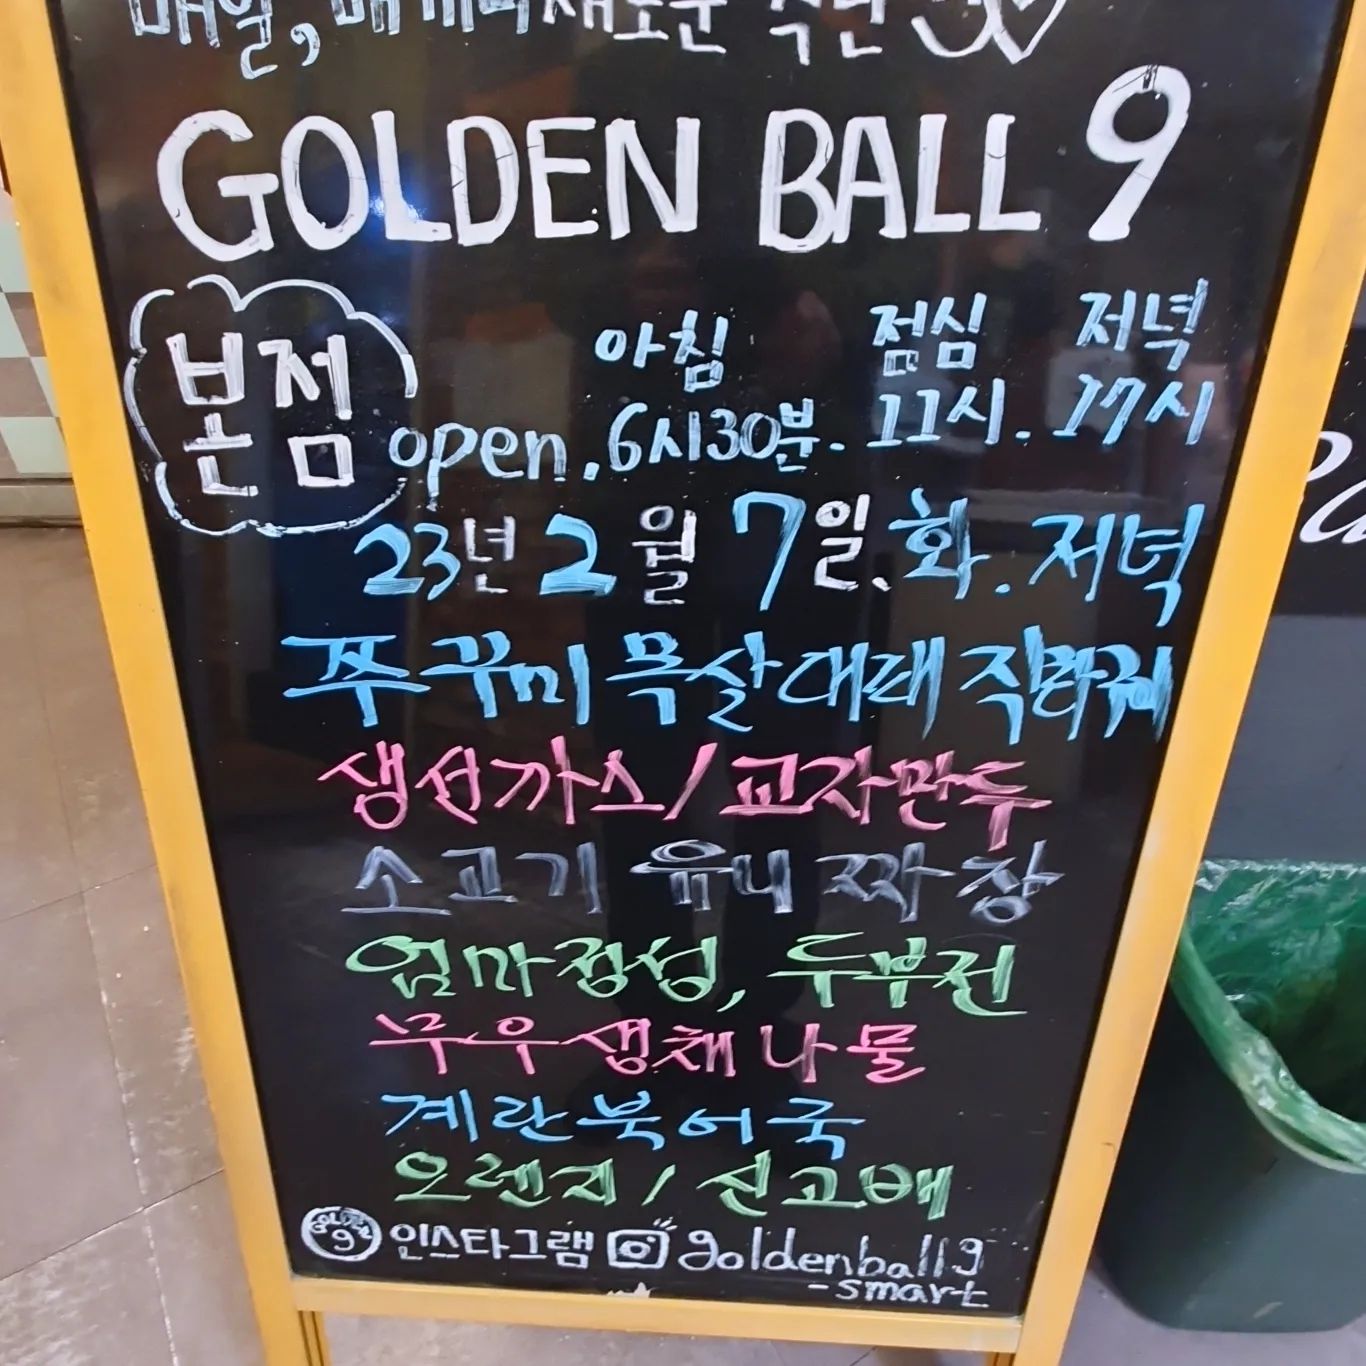 매일, 매끼마 새로운 식단
GOLDEN BALL 9
본점
아침 점심 저녁
open. 6시30분. 11시. 17시
23년 2월 7일. 화. 저녁
쭈꾸미 목살 대패 직화구이
생선까스/교자만두
소고기 유니 짜장
엄마정성, 두부전
무우생채 나물
계란북어국
오렌지/신고배
GOLDEN 9 인스타그램 goldenball9
-smart